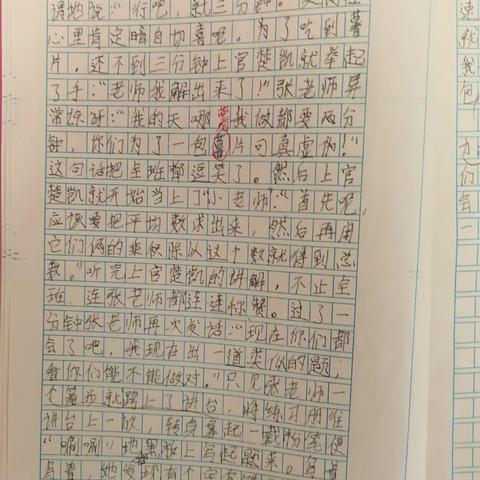 谓地说："行吧，就三分钟。"
心里肯定暗自切喜呢。为了吃到薯
片，还不到三分钟上官楚凯就举起
了手："老师我解出来了！"张老师异
常惊讶："我的天哪，我做都要两分
钟，你们为了一包薯片可真虚伪！"
这句话把全班都逗笑了。然后上官
楚凯就开始当上了"小老师"："首先呢，
应该要把平均数求出来，然后再用
它们俩的乘积除以这个数就得到总
数。"听完上官楚凯的讲解，不止全
班，连张老师都连连称赞。过了一
分钟张老师再次发话："现在你们都
会了吧，我现在出一道类似的题，
看你们能不能做对。"只见张老师一
个箭步就跨上了讲台，将练习册往
讲台上一放，转身拿起一截粉笔便
"唰唰"地黑板上写起题来。